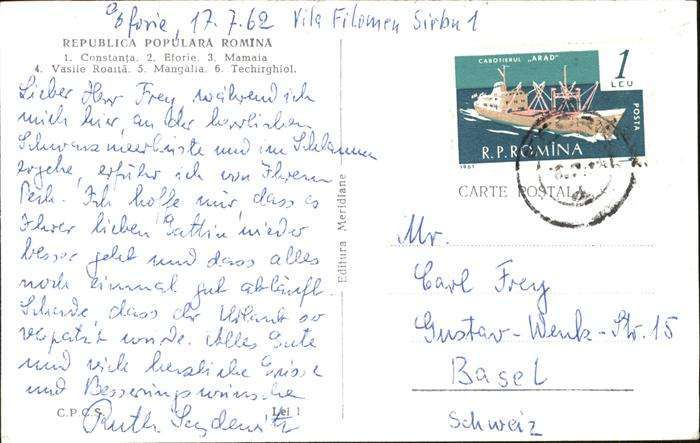 Eforie, 17.7.62 Vila Filomen Sirbu 1
REPUBLICA POPULARĂ ROMÎNĂ
1. Constanţa. 2. Eforie. 3. Mamaia
4. Vasile Roaită. 5. Mangalia. 6. Techirghiol.
Lieber Herr Frey, während ich
mich hier, an der herrlichen
Schwarzmeerküste und im Schlamm
ergehe, erfuhr ich von Ihrem
Pech. Ich hoffe nur, dass es
Ihrer lieben Gattin wieder
besser geht und dass alles
noch einmal gut abläuft.
Schade, dass der Urlaub so
verpatzt wurde. Alles Gute
und viele herzliche Grüsse
und Besserungswünsche
Ruth
C.P.C.S.
Lei 1
Editura Meridiane
CABOTIERUL „ARAD"
1 LEU
POSTA
R.P. ROMÎNA
1961
CARTE POŞTALĂ
Mr.
Carl Frey
Gustav-Wenk-Str. 15
Basel
Schweiz